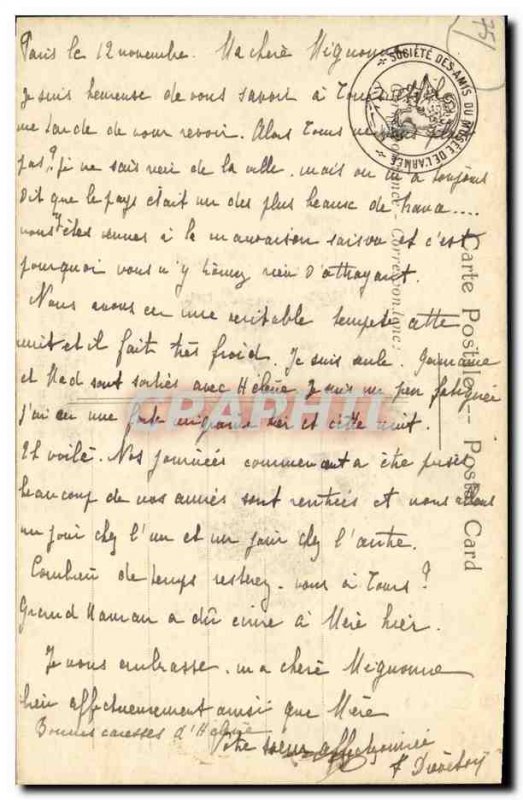 75
SOCIÉTÉ DES AMIS DU MUSÉE DE L'ARMÉE
Paris le 12 novembre. Ma chere Mignonne
Je suis heureuse de vous savoir à
me tarde de vous revoir. Alors Tours ne
pas? Je ne sais rien de la ville. mais on m'a toujours
dit que le pays était un des plus beaux de France....
vous êtes venues à la mauvaise saison et c'est
pourquoi vous n'y trouvez rien d'attrayant.
Nous avons eu une veritable tempete cette
nuit et il fait très froid. Je suis seule. Germaine
et Mad sont sorties avec Hélène Je suis un peu fatiguée
j'ai eu une forte migraine hier et cette nuit.
Et voilà. Nos journées commencent a être prises
beaucoup de nos amies sont rentrées et nous allons
un jour chez l'un et un jour chez l'autre.
Combien de temps resterez-vous à Tours?
Grand Maman a dû ecrire à Mère hier.
Je vous embrasse. ma chere Mignonne
bien affectueusement ainsi que Mère
Bonnes caresses d'Hélène
Votre soeur affectionnée
Carte Postale -- Post Card
Correspondance - Correspondence:
CPAPHIL